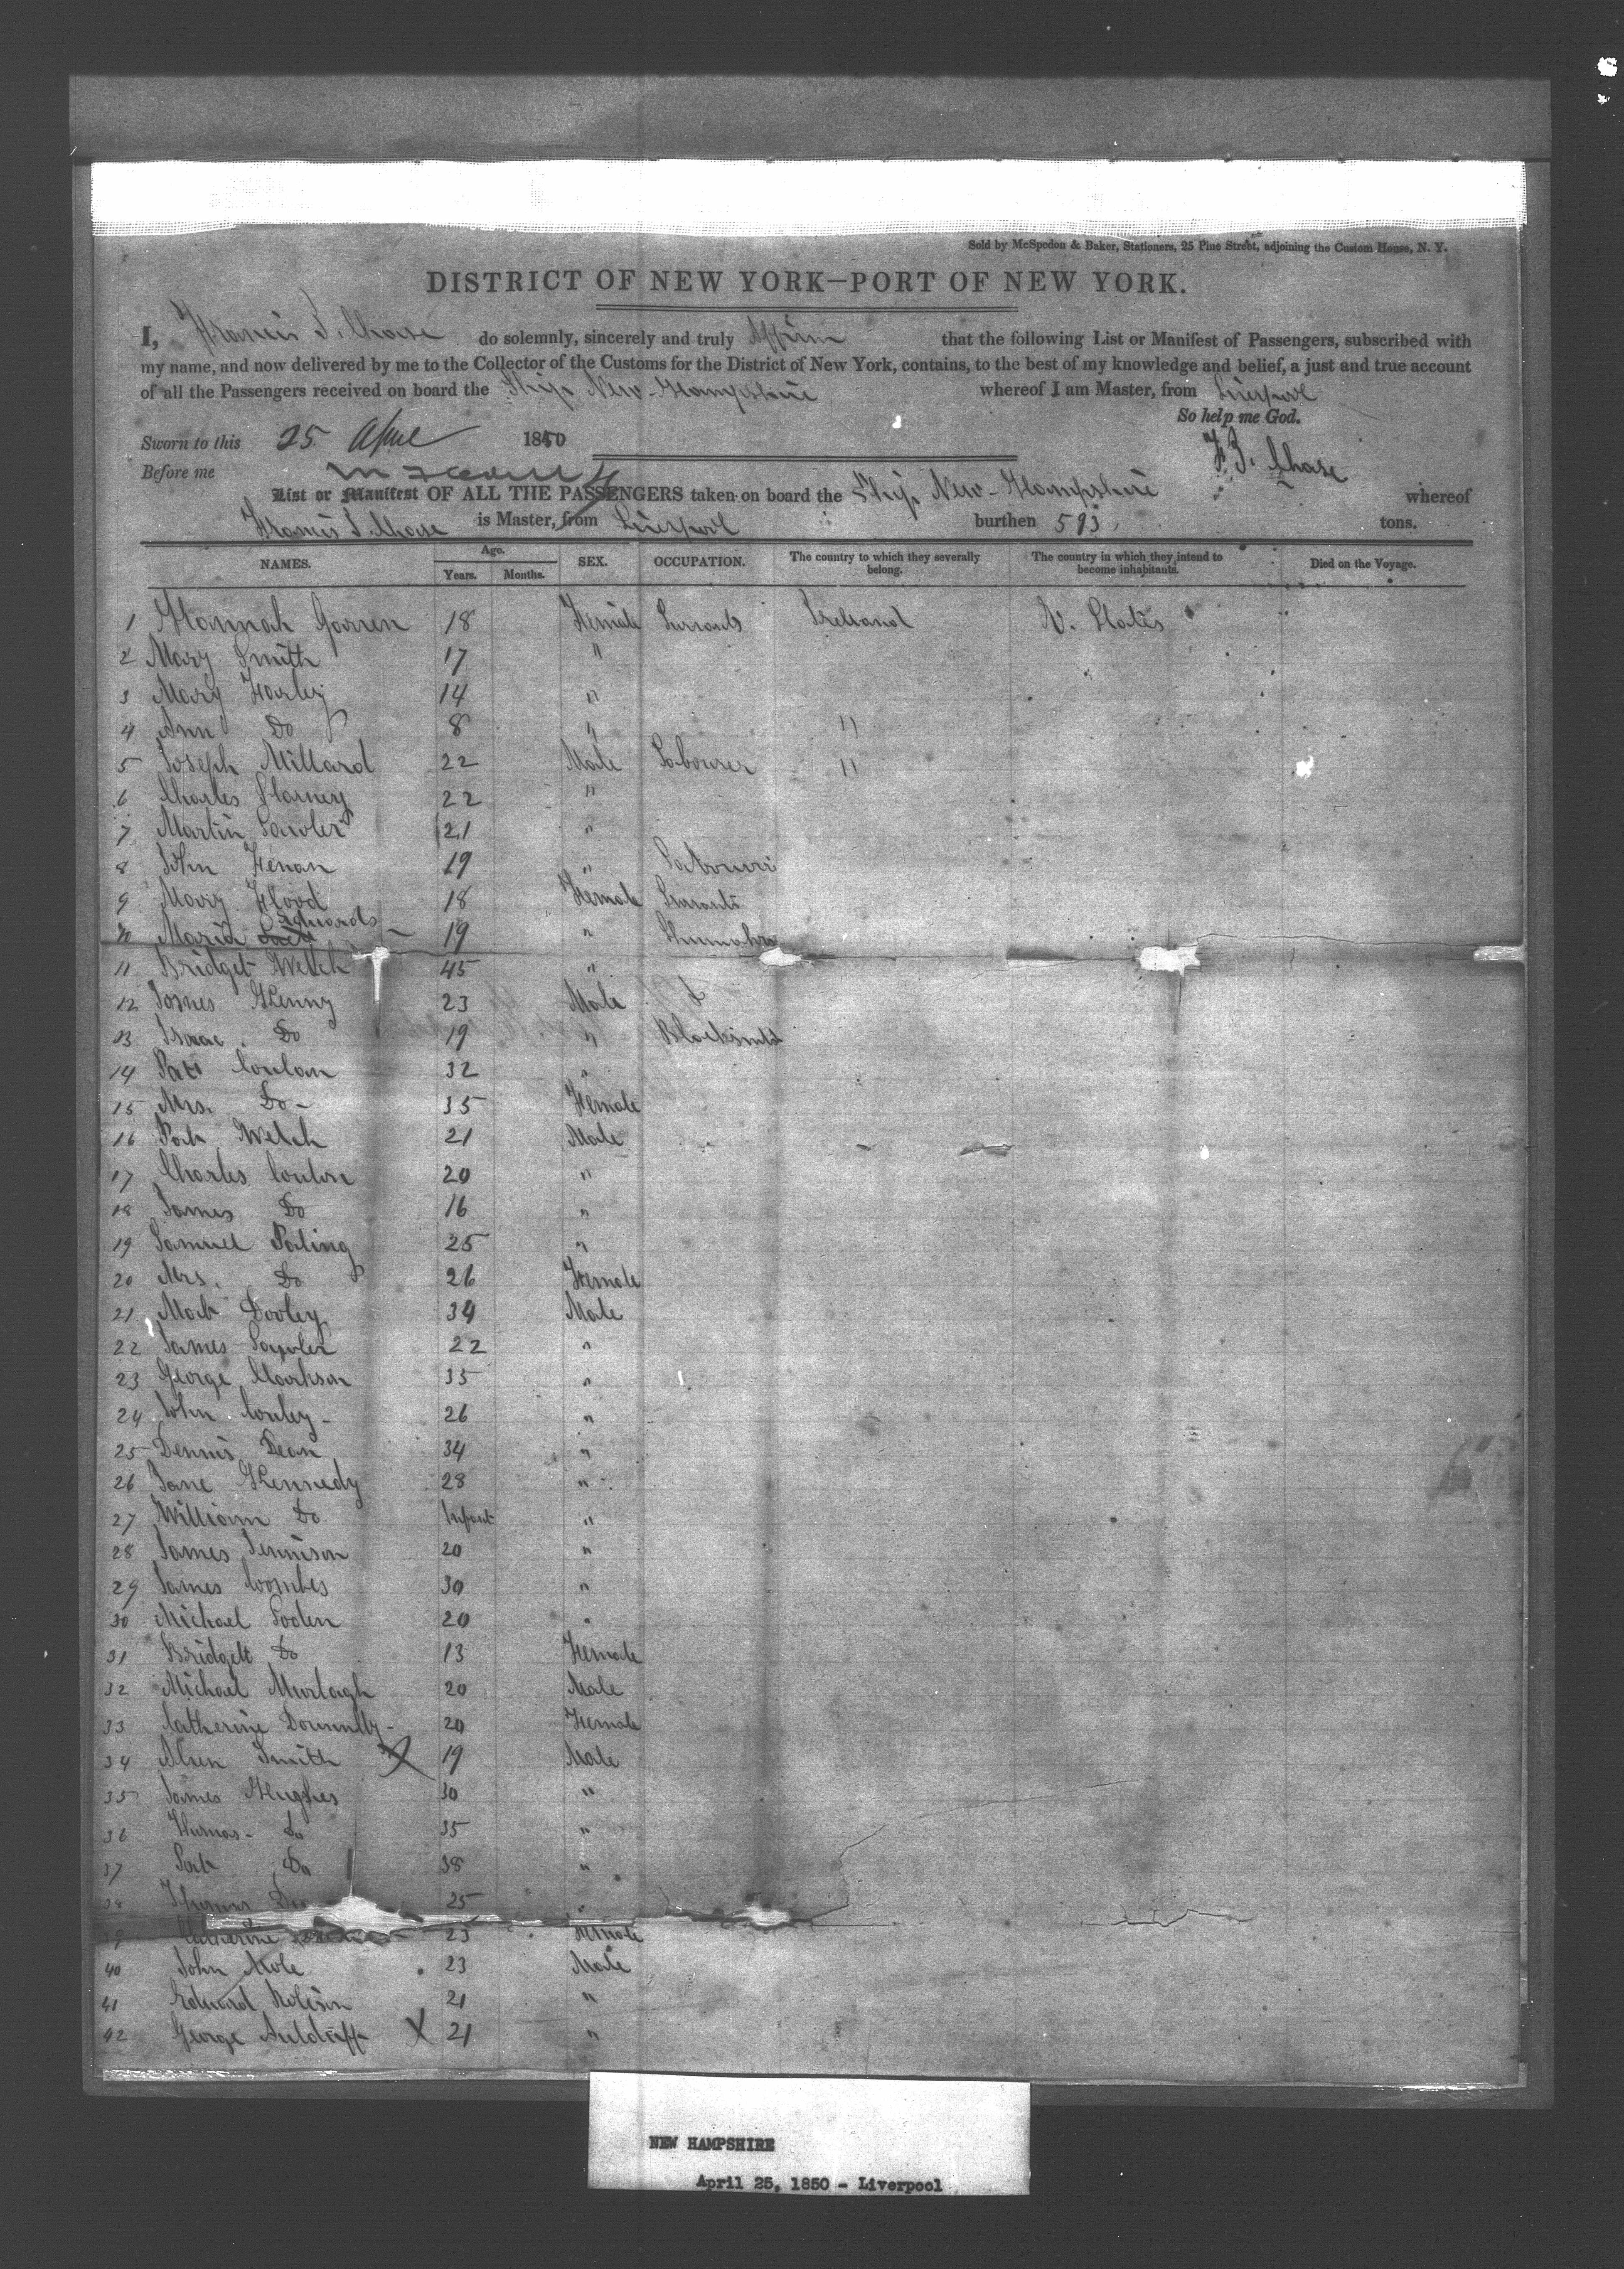 Sold by McSpedon & Baker, Stationers, 25 Pine Street, adjoining the Custom House, N. Y.
DISTRICT OF NEW YORK—PORT OF NEW YORK.
I, Francis S. Chase do solemnly, sincerely and truly Affirm that the following List or Manifest of Passengers, subscribed with
my name, and now delivered by me to the Collector of the Customs for the District of New York, contains, to the best of my knowledge and belief, a just and true account
of all the Passengers received on board the Ship New-Hampshire whereof I am Master, from Liverpool
So help me God.
Sworn to this 25 April 1850
F. S. Chase
Before me
List or Manifest OF ALL THE PASSENGERS taken on board the Ship New-Hampshire whereof
Francis S. Chase is Master, from Liverpool burthen 593 tons.
NAMES. Age. Years. Months. SEX. OCCUPATION. The country to which they severally belong. The country in which they intend to become inhabitants. Died on the Voyage.
1 Hannah 18 Female Servants Ireland U. States
2 Mary Smith 17 "
3 Mary Farley 14 "
4 Ann Do 8 " "
5 Joseph Millard 22 Male Labourer "
6 Charles 22 "
7 Martin Lawler 21 "
8 John 19 " Labourer
9 Mary Flood 18 Female Servants
10 Maria Edwards 19 "
11 Bridget Welch 45 "
12 James Kenny 23 Male
13 Isaac Do 19 " Blacksmith
14 Pat Conlan 32 "
15 Mrs. Do 35 Female
16 Pat Welch 21 Male
17 Charles Conlon 20 "
18 James Do 16 "
19 Samuel Paling 25 "
20 Mrs. Do 26 Female
21 Mat Dooley 34 Male
22 James Lawler 22 "
23 George Clarkson 35 "
24 John Conley 26 "
25 Dennis Dean 34 "
26 Jane Kennedy 28 "
27 William Do Infant "
28 James Jennison 20 "
29 James Coombes 30 "
30 Michael Soden 20 "
31 Bridgett Do 13 Female
32 Michael Murtagh 20 Male
33 Catherine Donnelly 20 Female
34 Smith X 19 Male
35 James Hughes 30 "
36 Thomas Do 35 "
37 Pat Do 38 "
38 Thomas Do 25 "
39 Catherine 25 Female
40 John Mole 23 Male
41 Edward 21 "
42 George X 21 "
NEW HAMPSHIRE
April 25, 1850 - Liverpool